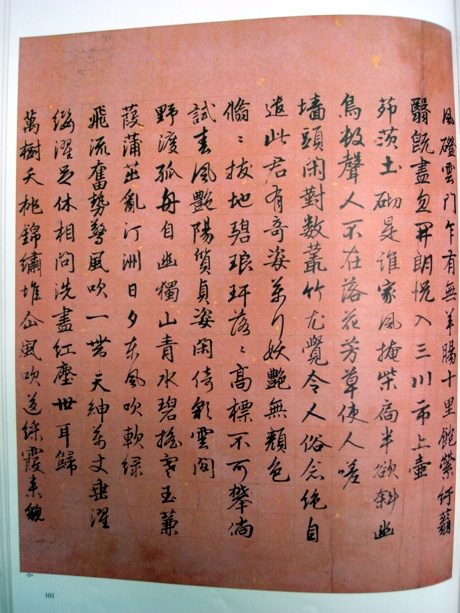 風磴雲門乍有無羊腸十里縈紆蓊
翳既盡忽開朗恍入三川市上壺
茆茨土砌是誰家風掩柴扃半欲斜幽
鳥數聲人不在落花芳草使人嗟
墻頭閑對數叢竹尤覺令人俗念絕自
造此君有奇姿萬行妖艷無顏色
翛〻拔地碧琅玕落〻高標不可攀倘
試春風艷陽質貞姿閑倚彩雲間
野渡孤舟自幽獨山青水碧搖寒玉蒹
葭蒲茁亂汀洲日夕東風吹軟綠
飛流奮勢驚風吹一帶天紳萬丈垂濯
纓濯足休相問洗盡紅塵世耳歸
萬樹夭桃錦繡堆風吹送綵霞來
103